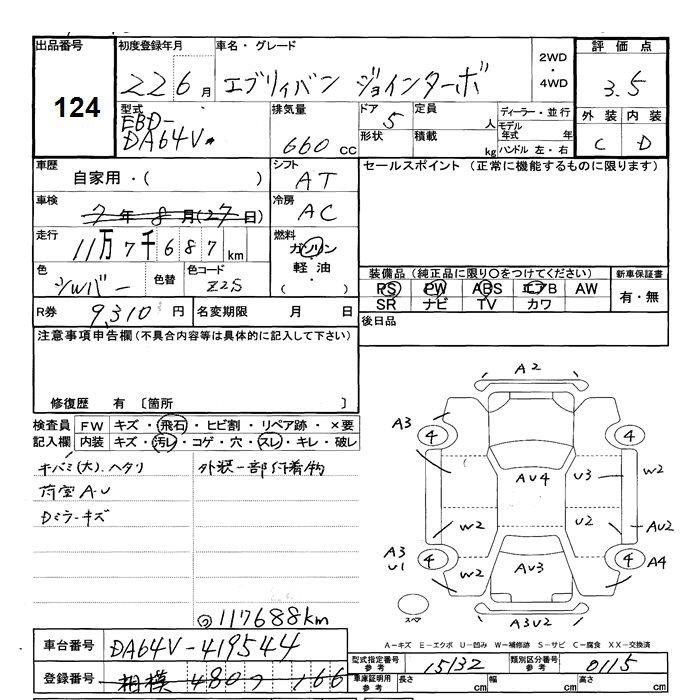 出品番号 初度登録年月 車名・グレード 2WD・4WD 評価点
124 22 6月 エブリィバン ジョインターボ 3.5
型式 EBD-DA64V 排気量 660cc ドア 5 定員 人 ディーラー・並行 外装 内装
形状 積載 kg モデル年式 年 ハンドル 左・右 C D
車歴 自家用・( ) シフト AT セールスポイント (正常に機能するものに限ります)
車検 7年8月(27日) 冷房 AC
走行 11万7千687km 燃料 ガソリン・軽油・( )
色 シルバー 色替 色コード Z2S 装備品 (純正品に限り○をつけてください) 新車保証書
PS PW ABS エアB AW 有・無
SR ナビ TV カワ
R券 9,310円 名変期限 月 日 後日品
注意事項申告欄 (不具合内容等は具体的に記入して下さい)
修復歴 有 〔箇所 〕
検査員 FW キズ・飛石・ヒビ割・リペア跡・×要
記入欄 内装 キズ・汚レ・コゲ・穴・スレ・キレ・破レ
キバミ(大)、ヘタリ 外装一部付着物
荷室A.U
Dミラーキズ
117688km
A2
A3 4 4
W2
AU4 U3
W2 U2 AU2
A3 U1 4 4 A4
W2 AU3 W2
スペア A3U2
A-キズ E-エクボ U-凹み W-補修跡 S-サビ C-腐食 XX-交換済
車台番号 DA64V-419544
型式指定番号 参考 15132 類別区分番号 参考 0115
登録番号 相模 480 ﾂ 166
車庫証明用 参考 長さ cm 幅 cm 高さ cm